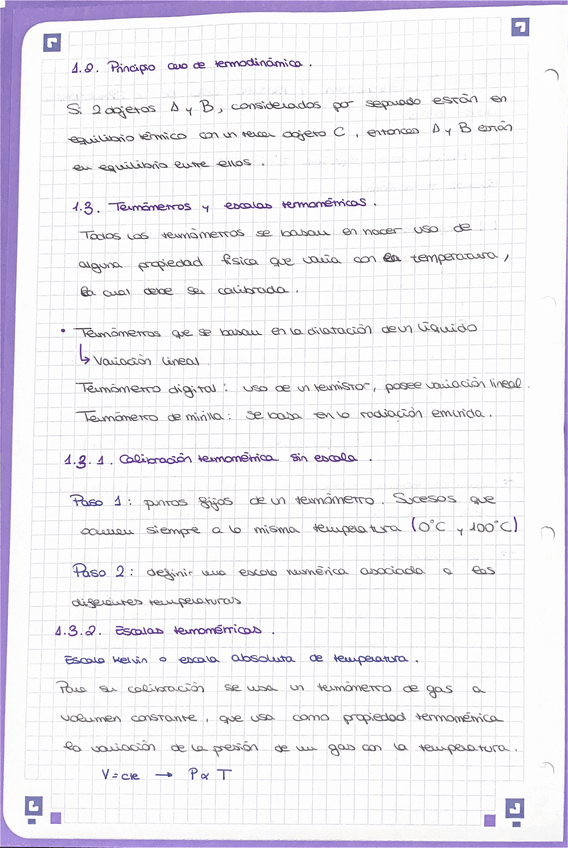 1.2. Principio cero de termodinámica.
Si 2 objetos A y B, considerados por separado están en
equilibrio térmico con un tercer objeto C, entonces A y B están
en equilibrio entre ellos.
1.3. Termómetros y escalas termométricas.
Todos los termómetros se basan en hacer uso de
alguna propiedad física que varía con la temperatura,
la cual debe ser calibrada.
• Termómetros que se basan en la dilatación de un líquido
↳ Variación lineal
Termómetro digital: uso de un termistor, posee variación lineal.
Termómetro de mirilla: se basa en la radiación emitida.
1.3.1. Calibración termométrica sin escala.
Paso 1: puntos fijos de un termómetro. Sucesos que
ocurren siempre a la misma temperatura (0°C y 100°C)
Paso 2: definir una escala numérica asociada a las
diferentes temperaturas
1.3.2. Escalas termométricas.
Escala Kelvin o escala absoluta de temperatura.
Para su calibración se usa un termómetro de gas a
volumen constante, que usa como propiedad termométrica
la variación de la presión de un gas con la temperatura.
V = cte → P ∝ T